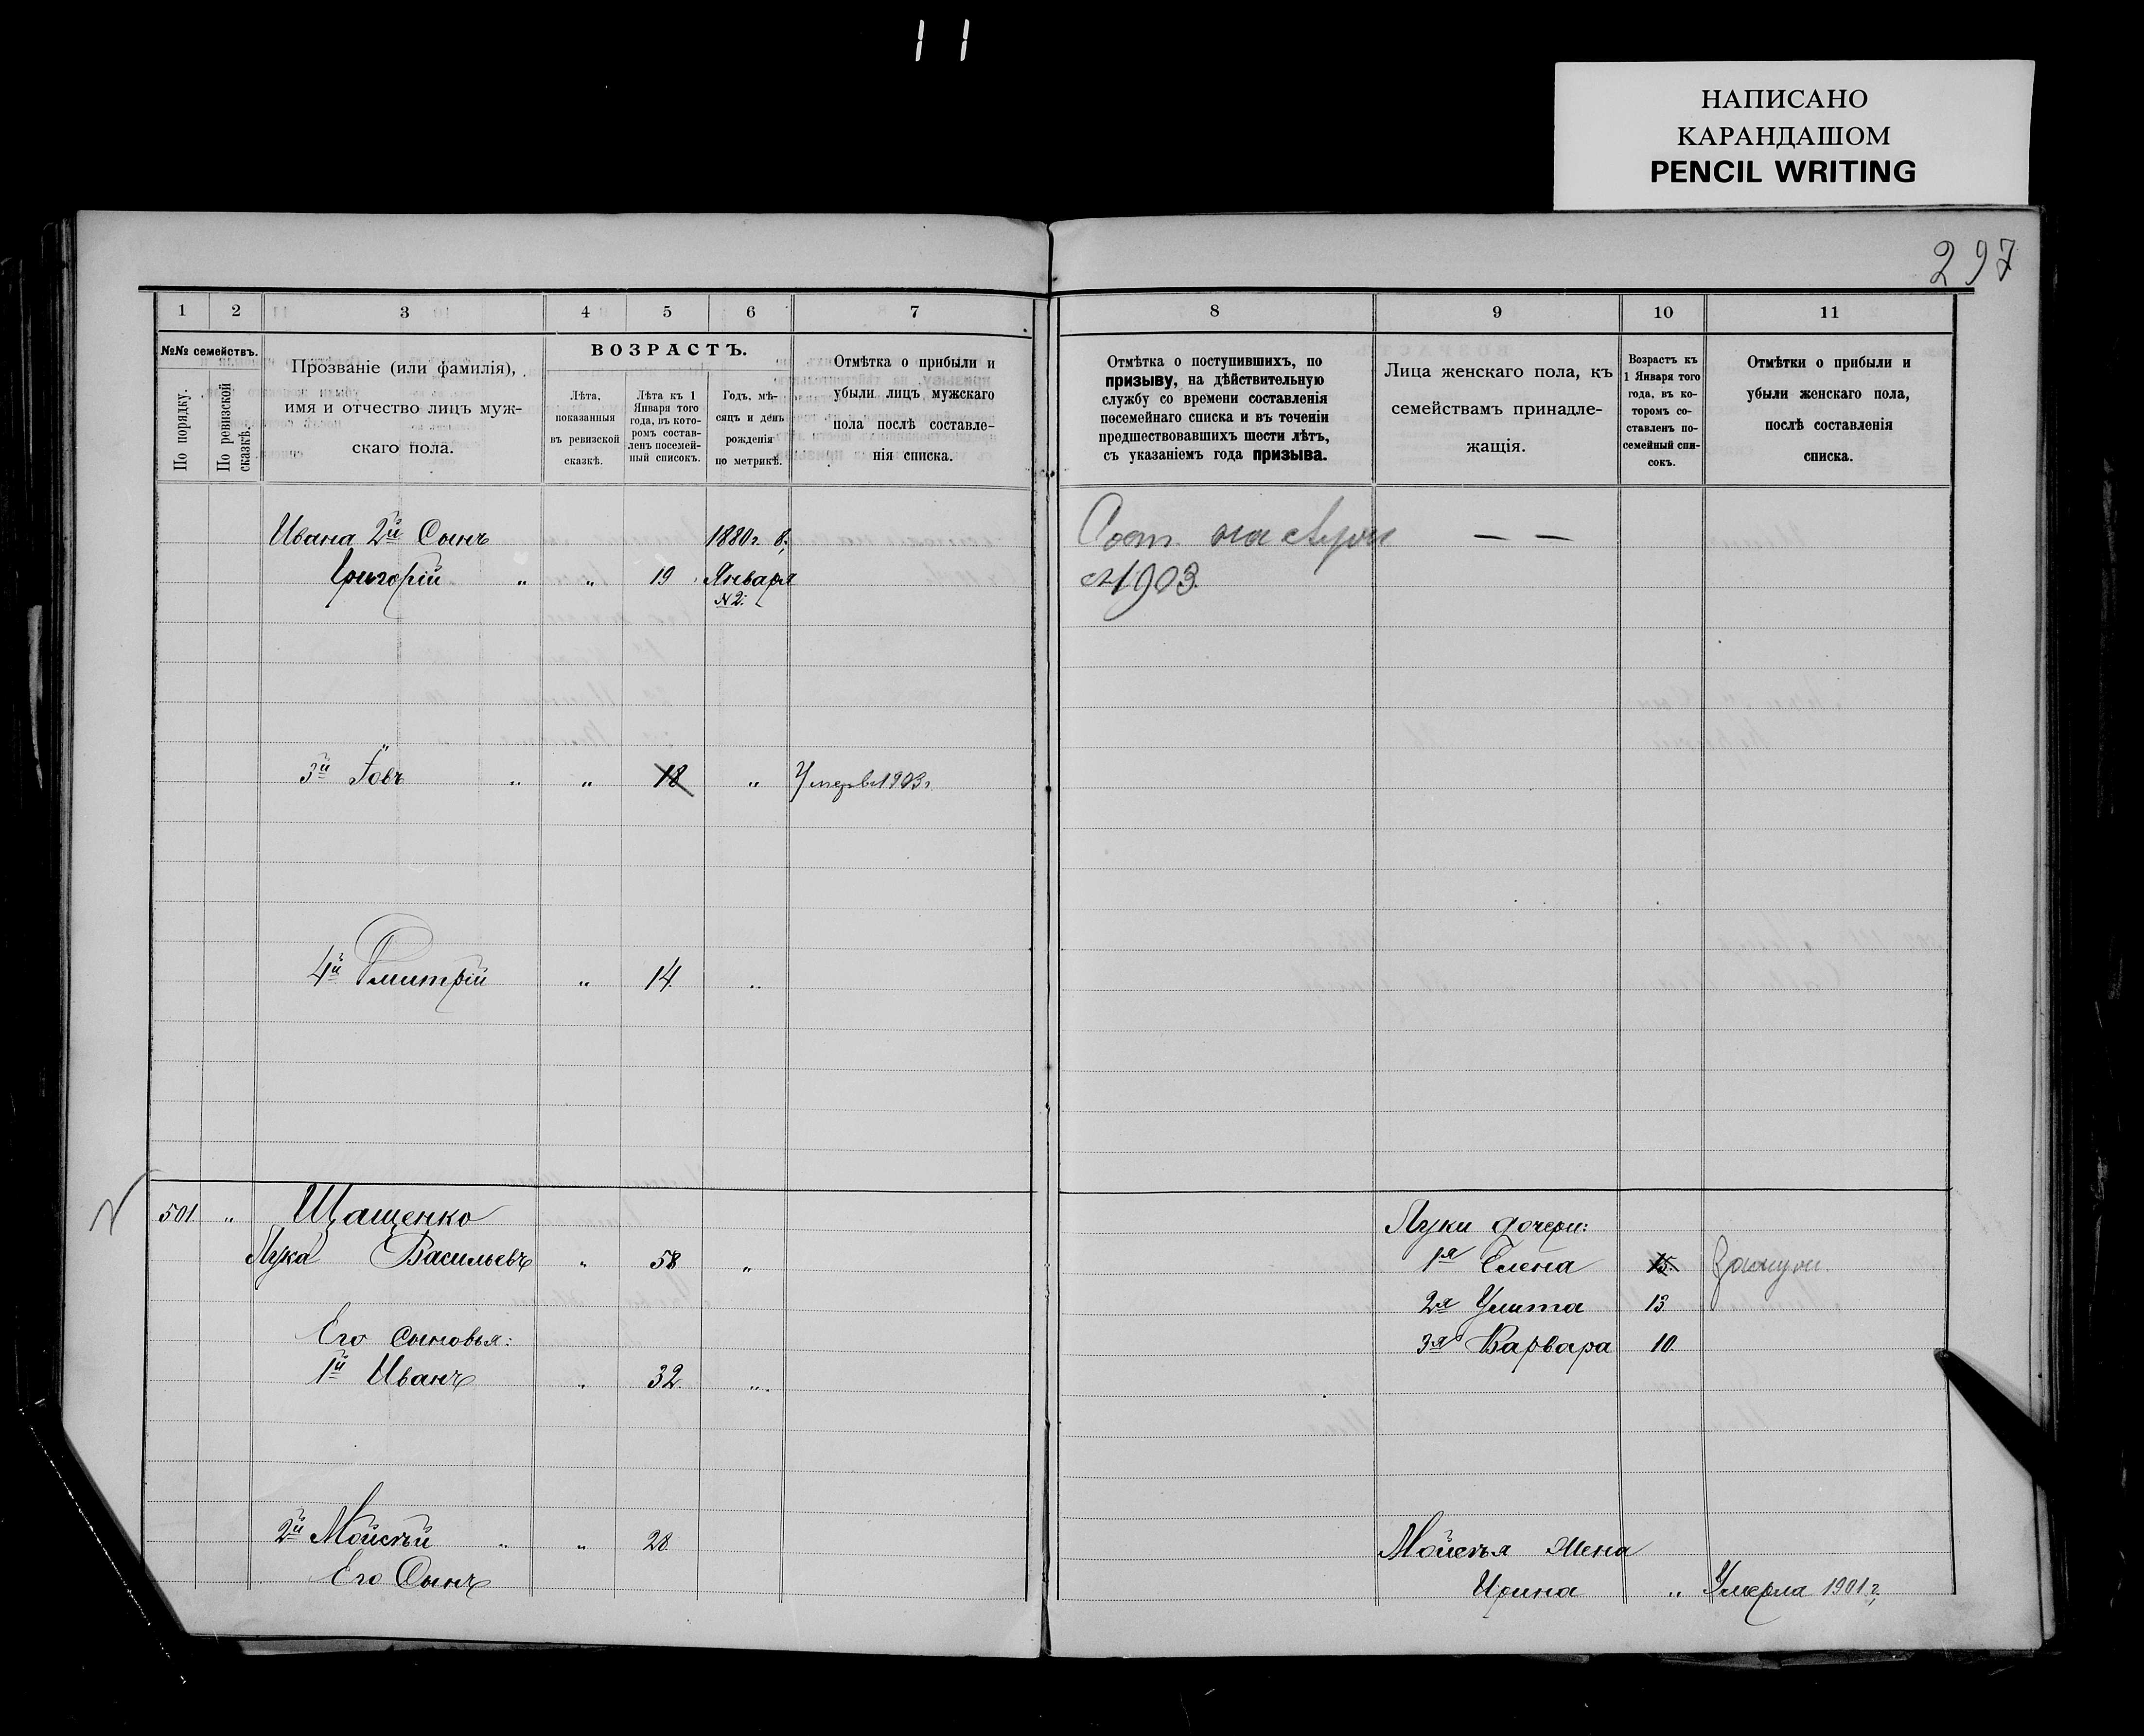 11
НАПИСАНО
КАРАНДАШОМ
PENCIL WRITING
297
1 2 3 4 5 6 7 8 9 10 11
№№ семействъ.
По порядку.
По ревизской сказкѣ.
Прозваніе (или фамилія),
имя и отчество лицъ муж-
скаго пола.
ВОЗРАСТЪ.
Лѣта,
показанныя
въ ревизской
сказкѣ.
Лѣта къ 1
Января того
года, въ кото-
ромъ состав-
ленъ посемей-
ный списокъ.
Годъ, мѣ-
сяцъ и день
рожденія
по метрикѣ.
Отмѣтка о прибыли и
убыли лицъ мужскаго
пола послѣ составле-
нія списка.
Отмѣтка о поступившихъ, по
призыву, на дѣйствительную
службу со времени составленія
посемейнаго списка и въ теченіи
предшествовавшихъ шести лѣтъ,
съ указаніемъ года призыва.
Лица женскаго пола, къ
семействамъ принадле-
жащія.
Возрастъ къ
1 Января того
года, въ ко-
торомъ со-
ставленъ по-
семейный спи-
сокъ.
Отмѣтки о прибыли и
убыли женскаго пола,
послѣ составленія
списка.
Ивана 2й Сынъ 1880 г. 8, — —
Григорій " " 19 Января 1903
№ 2.
3й Іовъ " " 18 " Умеръ 1903 г.
4й Дмитрій " 14 "
501 " Щащенко Луки дочери:
Лука Васильевъ " 58 " 1я Елена 15
2я Улита 13
Его сыновья: 3я Варвара 10
1й Иванъ " 32 "
2й Мойсѣй " " 28 Мойсѣя жена
Его Сынъ Ирина " Умерла 1901 г.